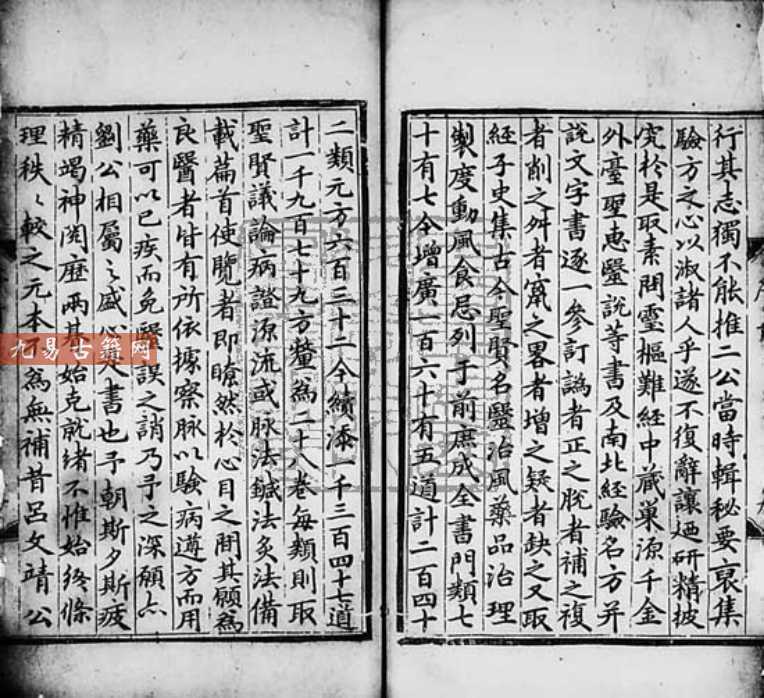 行其志獨不能推二公當時輯秘要裒集
驗方之心以淑諸人乎遂不復辭讓廼研精披
究於是取素問靈樞難經中藏巢源千金
外臺聖惠毉說等書及南北經驗名方并
說文字書逐一參訂譌者正之脫者補之複
者削之舛者之畧者增之疑者缺之又取
經子史集古今聖賢名毉治風藥品治理
製度動風食忌列于前庶成全書門類七
十有七今增廣一百六十有五道計二百四十
二類元方六百三十二今續添一千三百四十七道
計一千九百七十九方釐為二十八卷每類則取
聖賢議論病證源流或脉法鍼法灸法備
載篇首使覽者即瞭然於心目之間其願為
良醫者皆有所依據察脉以驗病遵方而用
藥可以已疾而免毉誤之誚乃予之深願亦
劉公相屬之盛心是書也予朝斯夕斯疲
精竭神閱歷兩朞始克就緒不惟始終條
理秩〻較之元本不為無補昔呂文靖公
九易古籍网